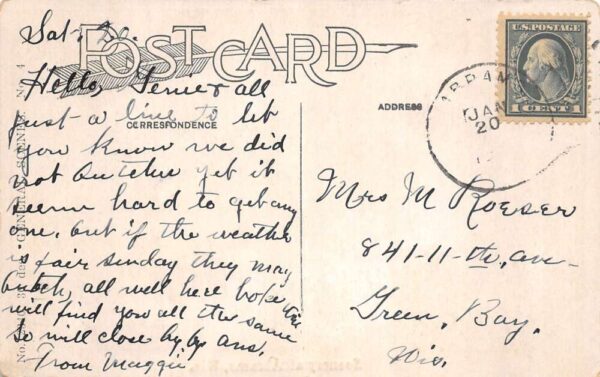 Sat. 20.
POST CARD
Hello, Tener & all
just a line to let
CORRESPONDENCE
you know we did
not butcher yet it
seem hard to get any
one, but if the weather
is fair sunday they may
butch, all well here hope this
will find you all the same
so will close by by ans.
From Maggie
GENERAL SCENES. No. 4
No.
ADDRESS
U.S. POSTAGE
1 CENT 1
ABRAMS
JAN
20
Mrs M Roeser
841-11-th, ave-
Green, Bay,
Wis.